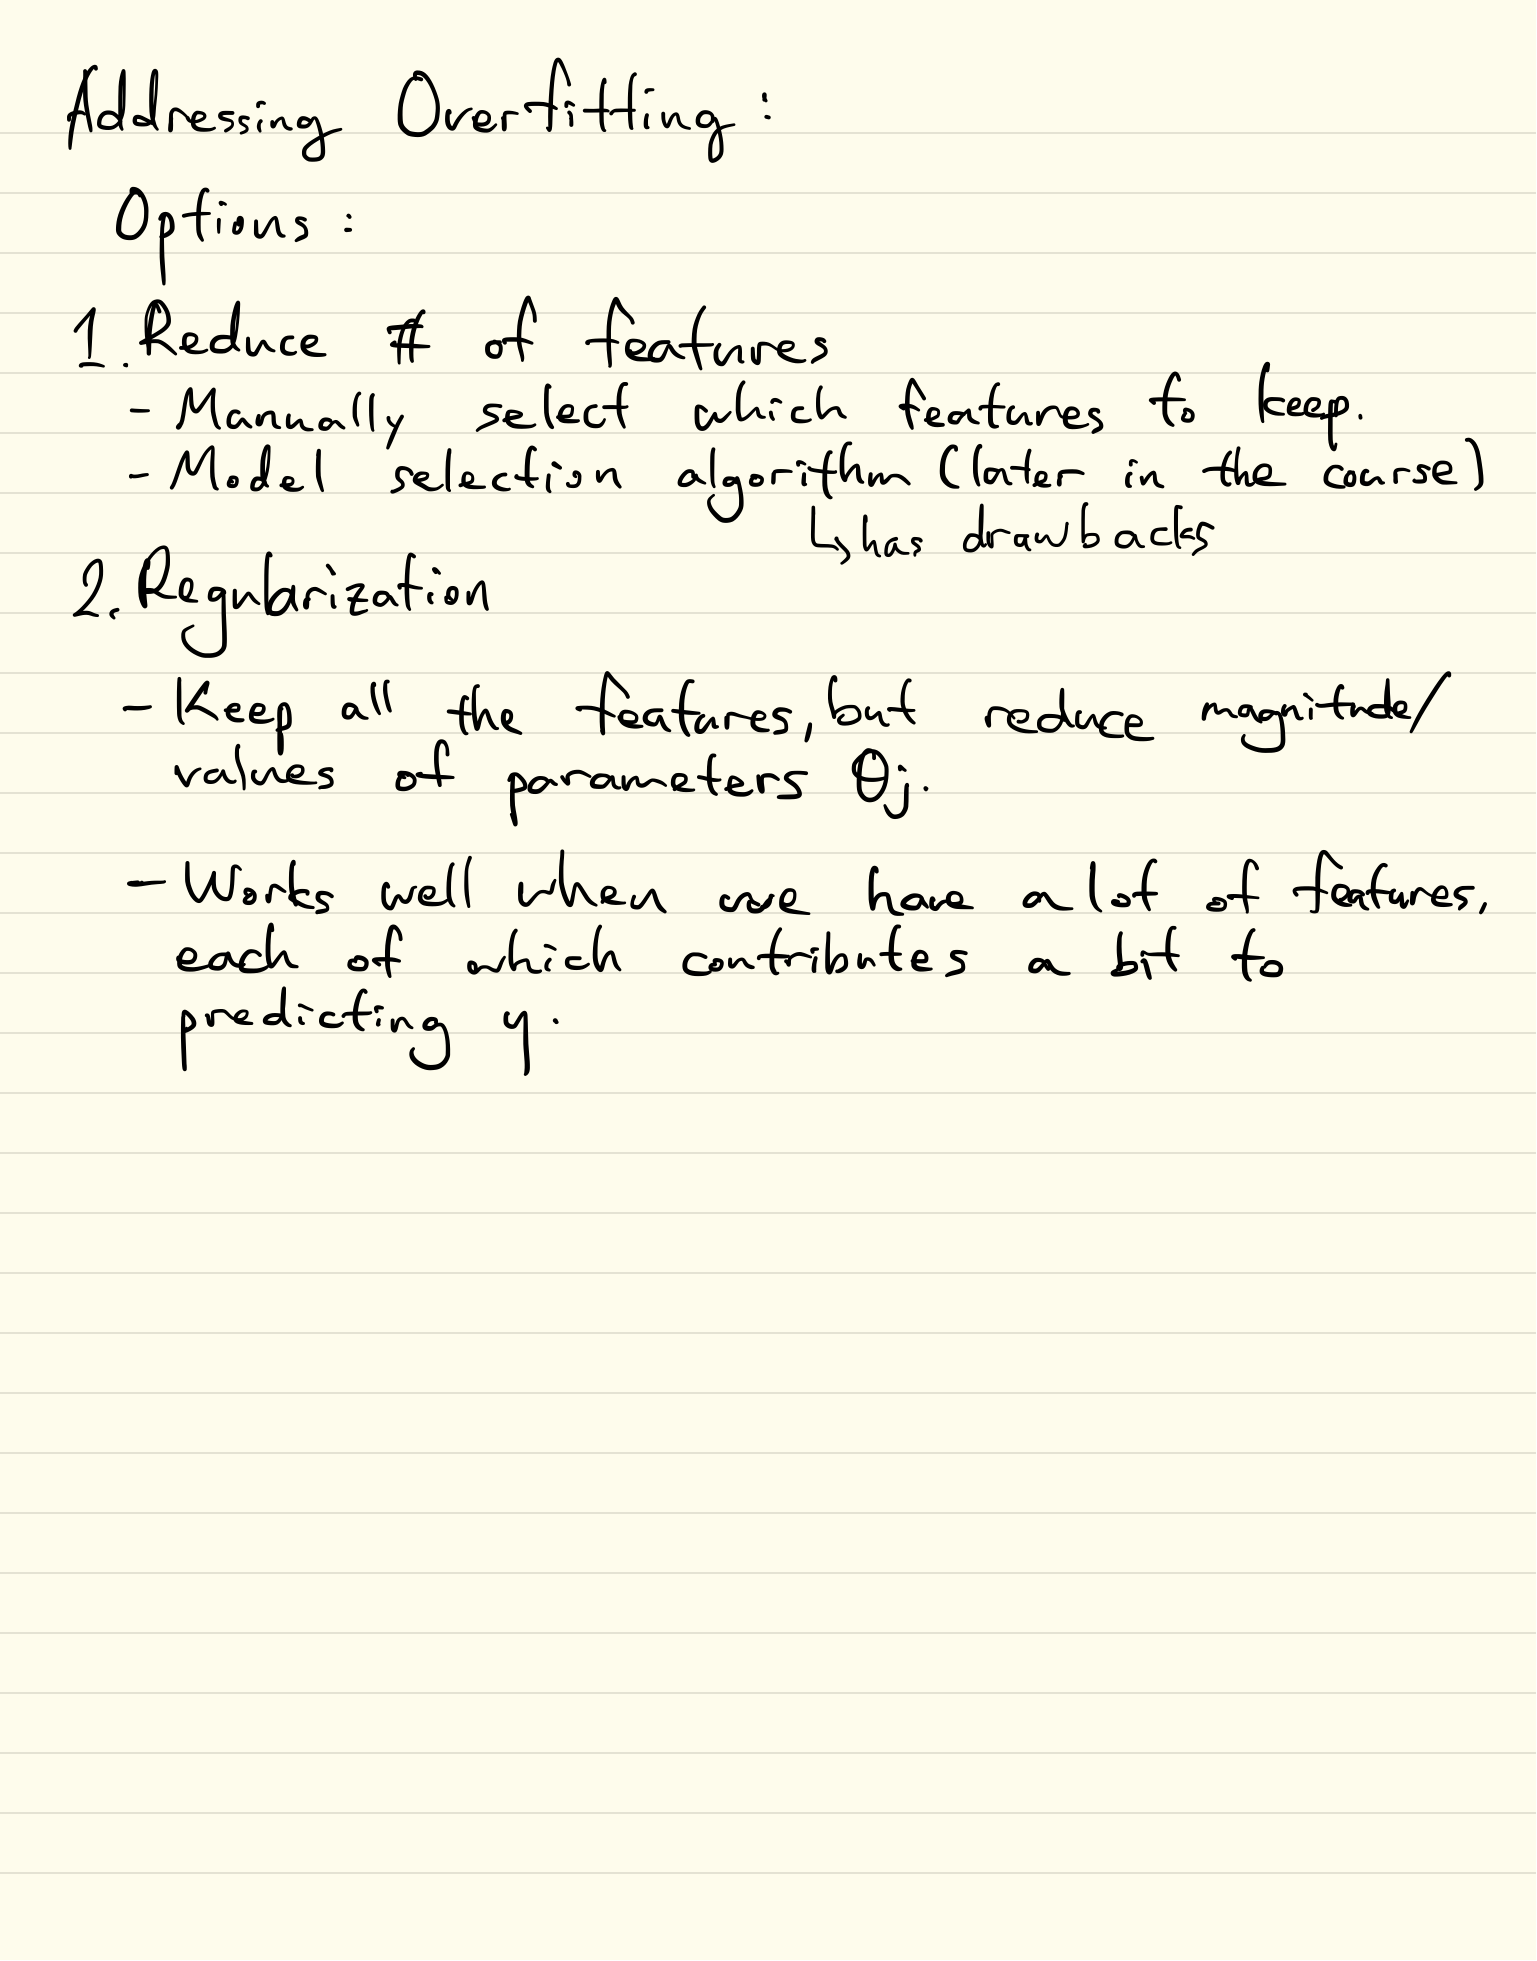 Addressing Overfitting:
Options:
1. Reduce # of features
- Manually select which features to keep.
- Model selection algorithm (later in the course)
↳ has drawbacks
2. Regularization
- Keep all the features, but reduce magnitude/
values of parameters θj.
- Works well when we have a lot of features,
each of which contributes a bit to
predicting y.